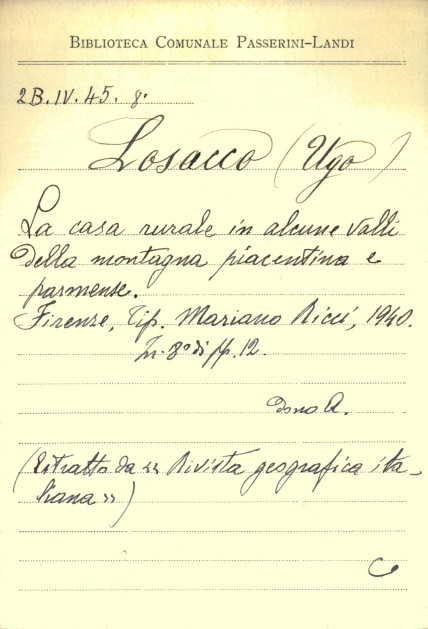 BIBLIOTECA COMUNALE PASSERINI-LANDI
2B.IV.45. 8°
Losacco (Ugo)
La casa rurale in alcune valli
della montagna piacentina e
parmense.
Firenze, Tip. Mariano Ricci, 1940.
In-8° di pp. 12.
Dono A.
(Estratto da «Rivista geografica ita-
liana»)